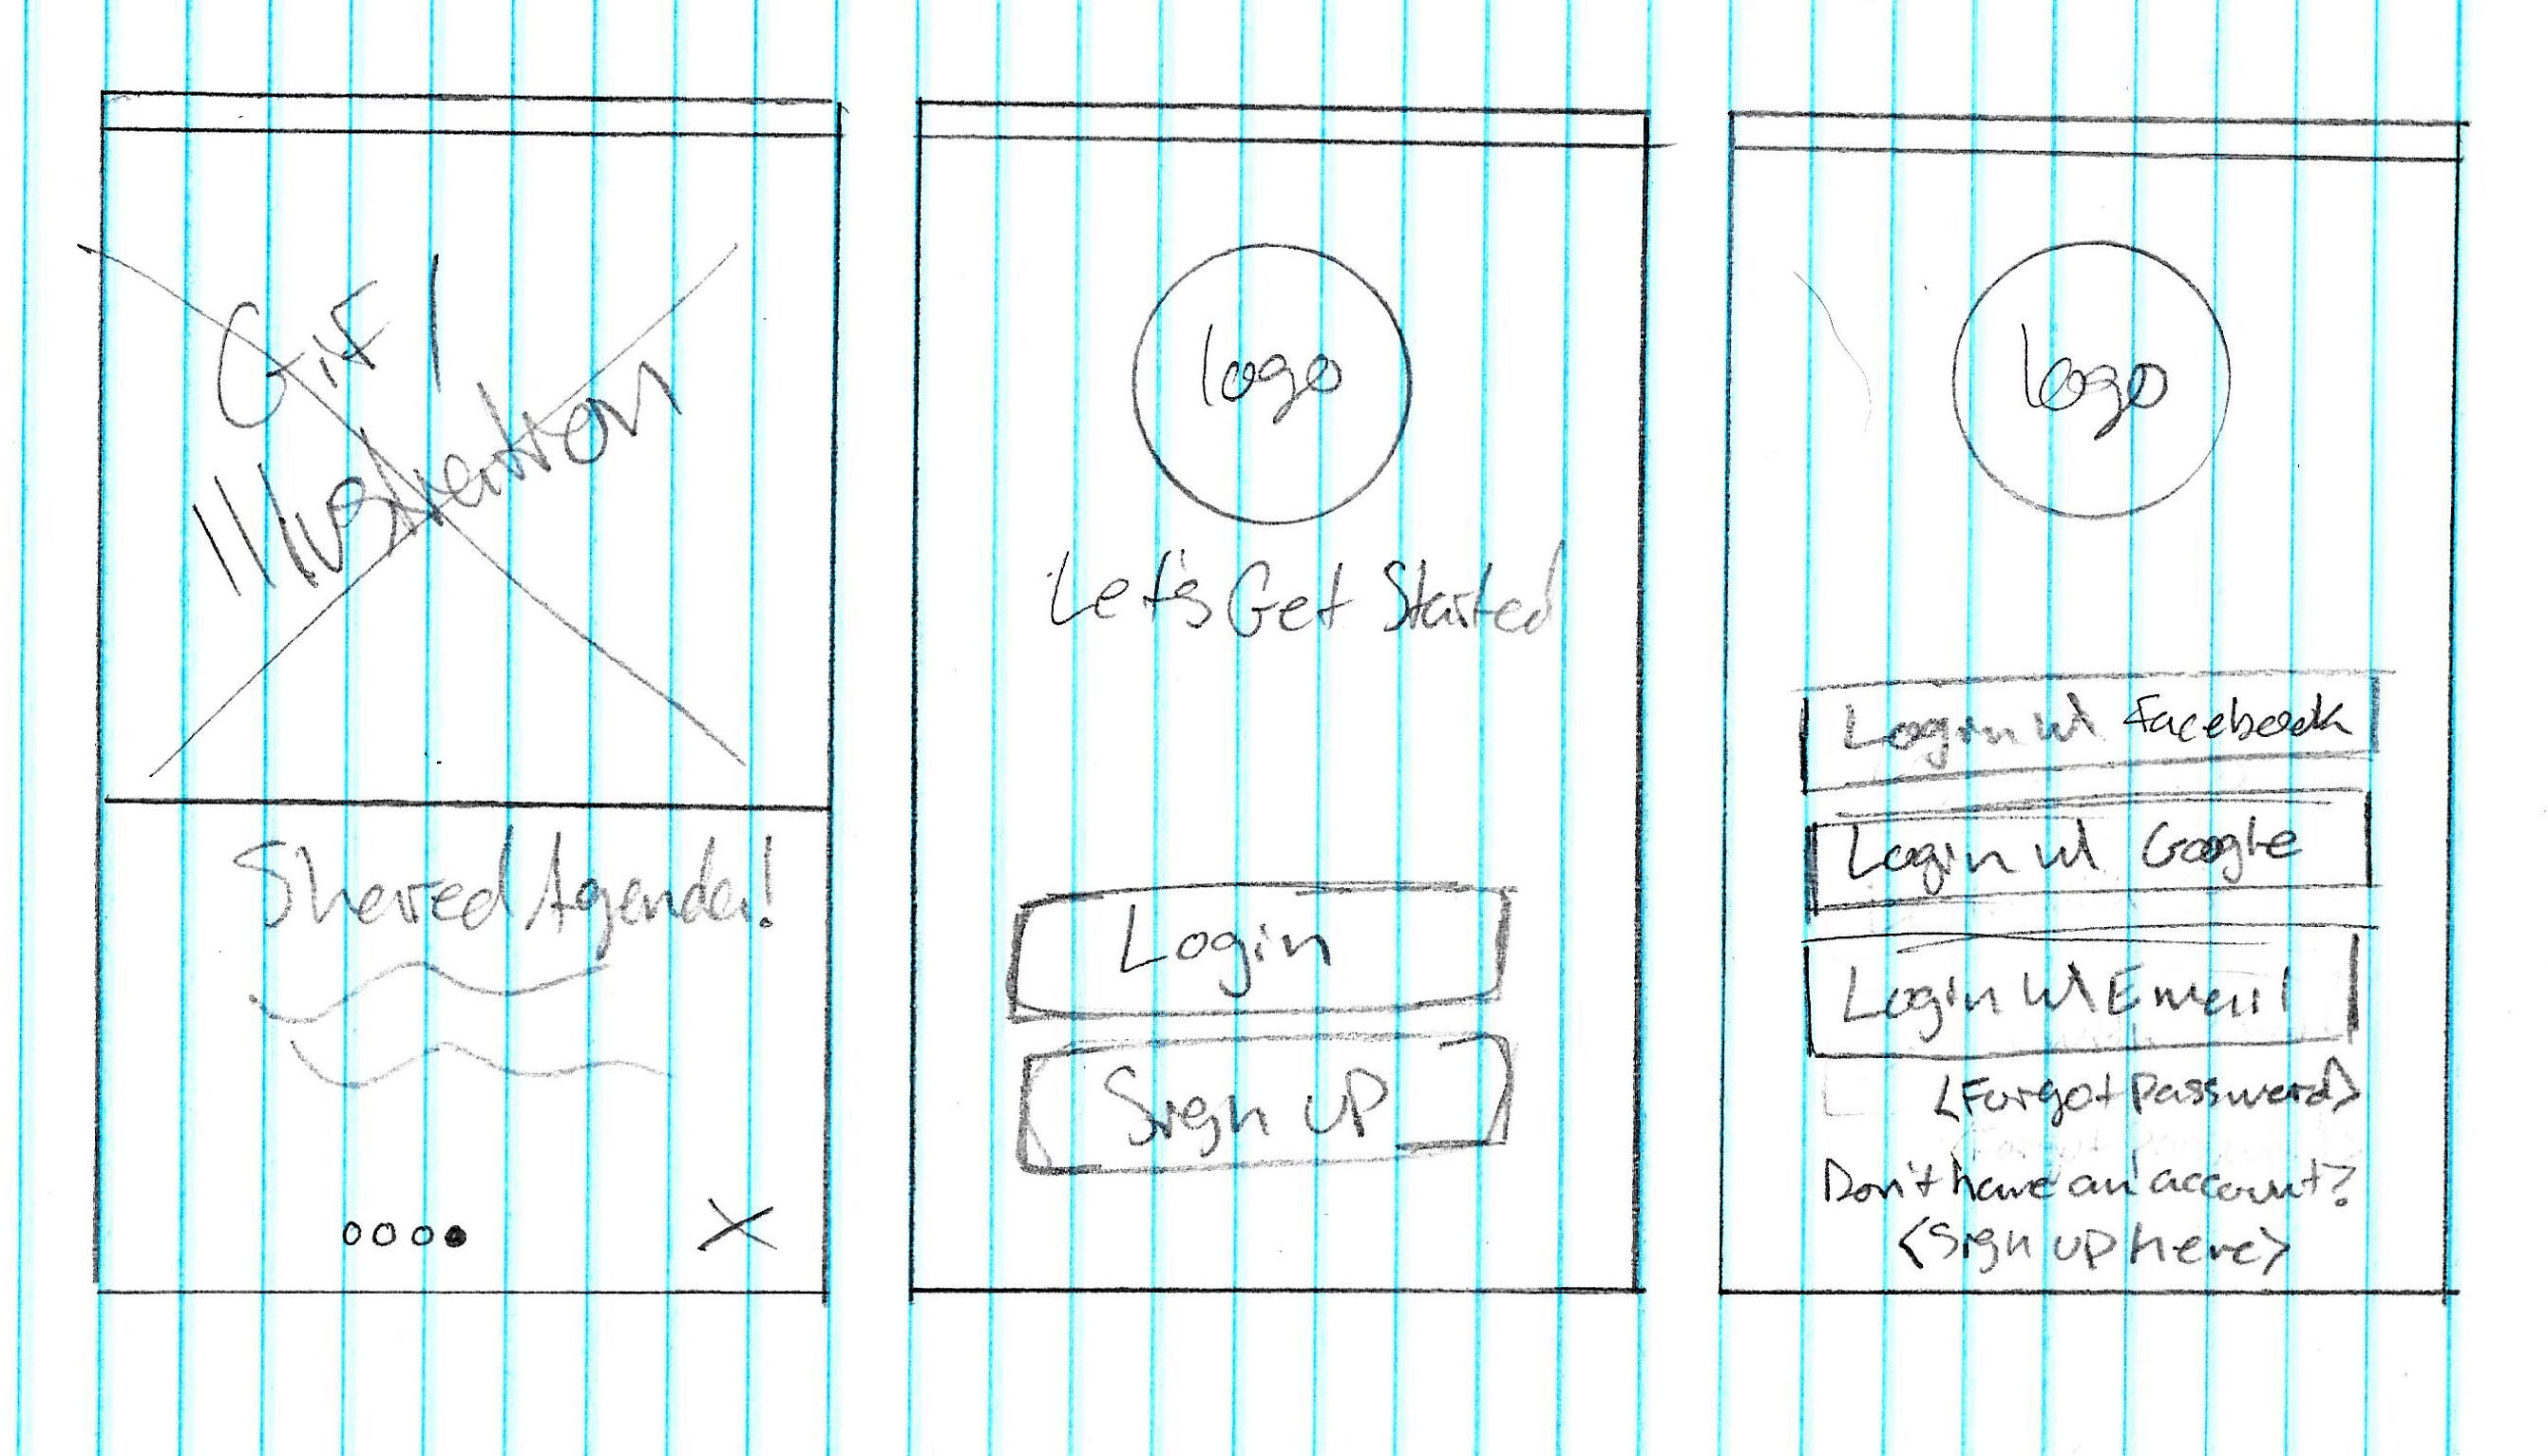 GIF /
Illustration
Shared Agenda!
X
logo
Let's Get Started
Login
Sign up
logo
Login w/ Facebook
Login w/ Google
Login w/ Email
<Forgot Password>
Don't have an account?
<Sign up here>